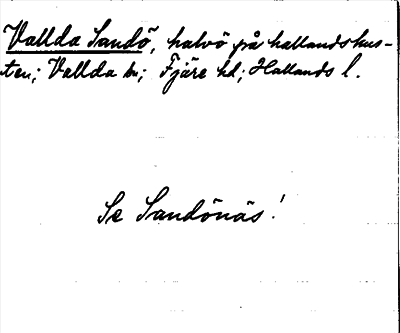 Vallda Sandö, halvö på hallandskus-
ten; Vallda sn; Fjäre hd; Hallands l.
Se Sandönäs!